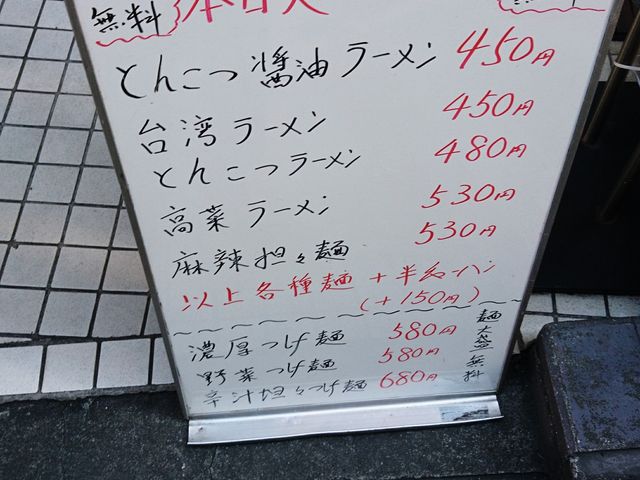 無料
とんこつ醤油ラーメン 450円
台湾ラーメン 450円
とんこつラーメン 480円
高菜ラーメン 530円
麻辣担々麺 530円
以上各種麺+半
(+150円)
濃厚つけ麺 580円
野菜つけ麺 580円
辛汁担々つけ麺 680円
麺大盛無料